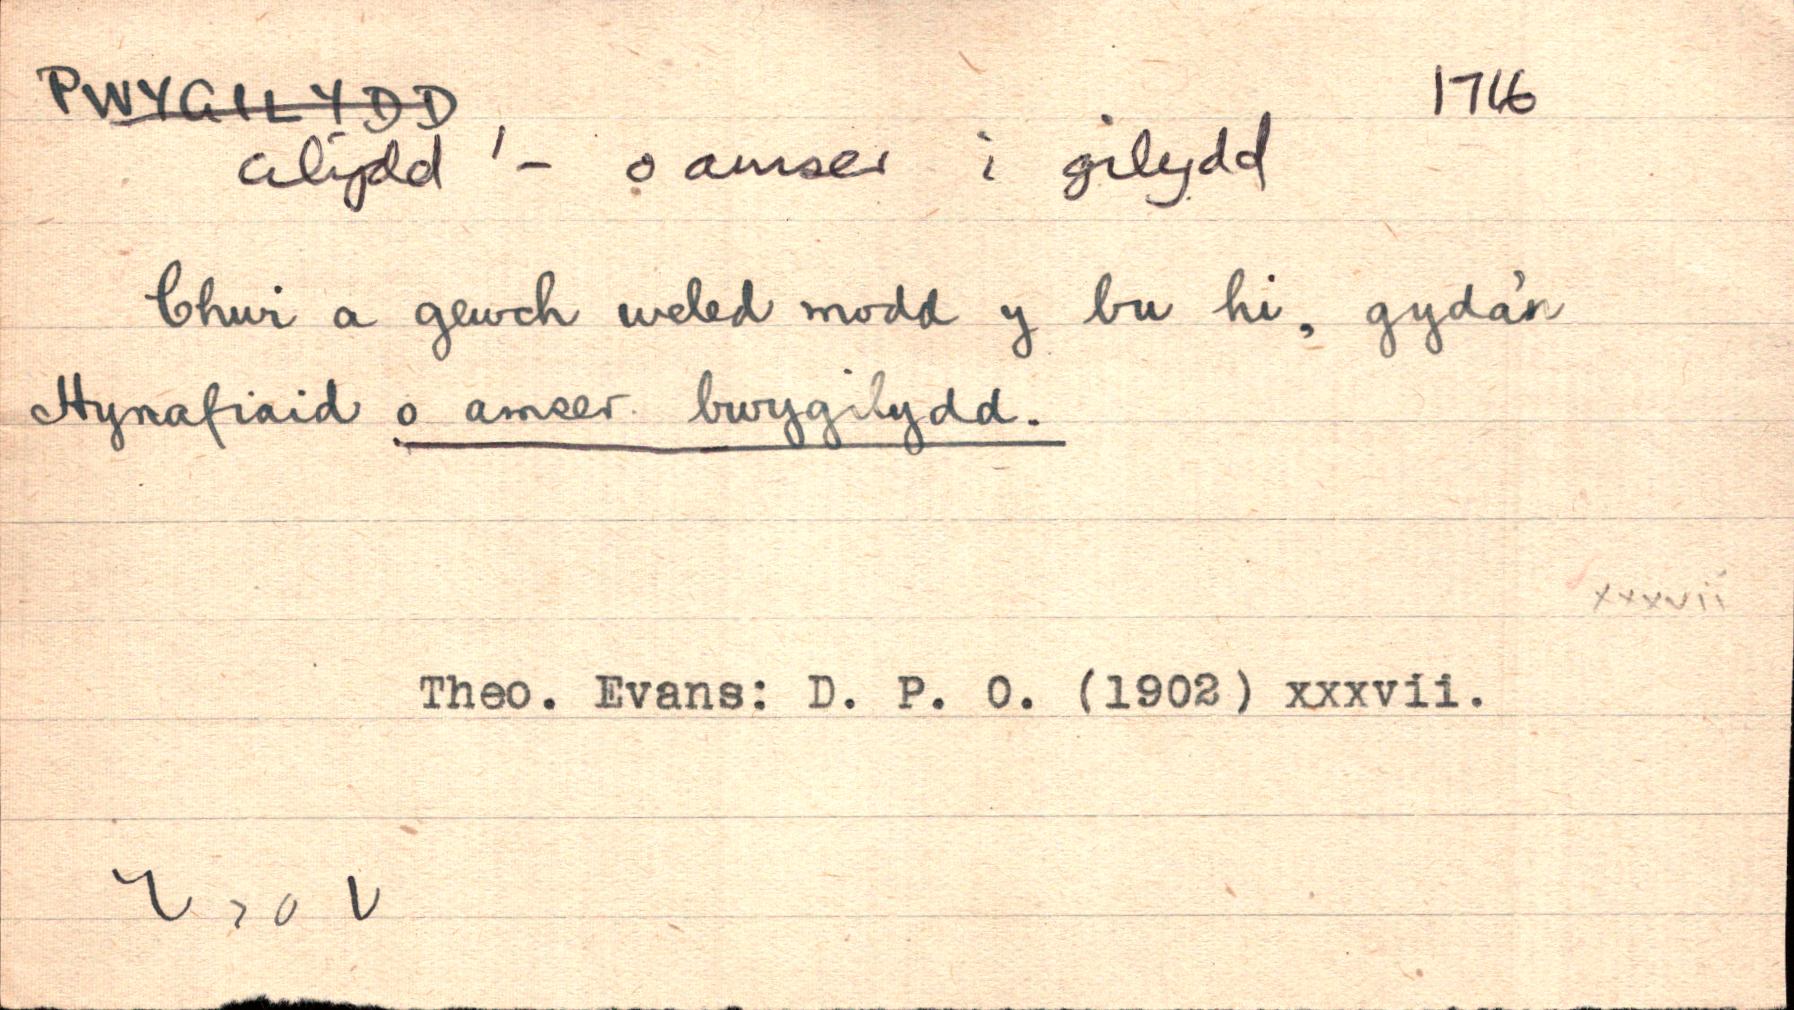 PWYGILYDD 1716
cilydd '- o amser i gilydd
Chwi a gewch weled modd y bu hi, gyda'n
Hynafiaid o amser bwygilydd.
xxxvii
Theo. Evans: D. P. O. (1902) xxxvii.